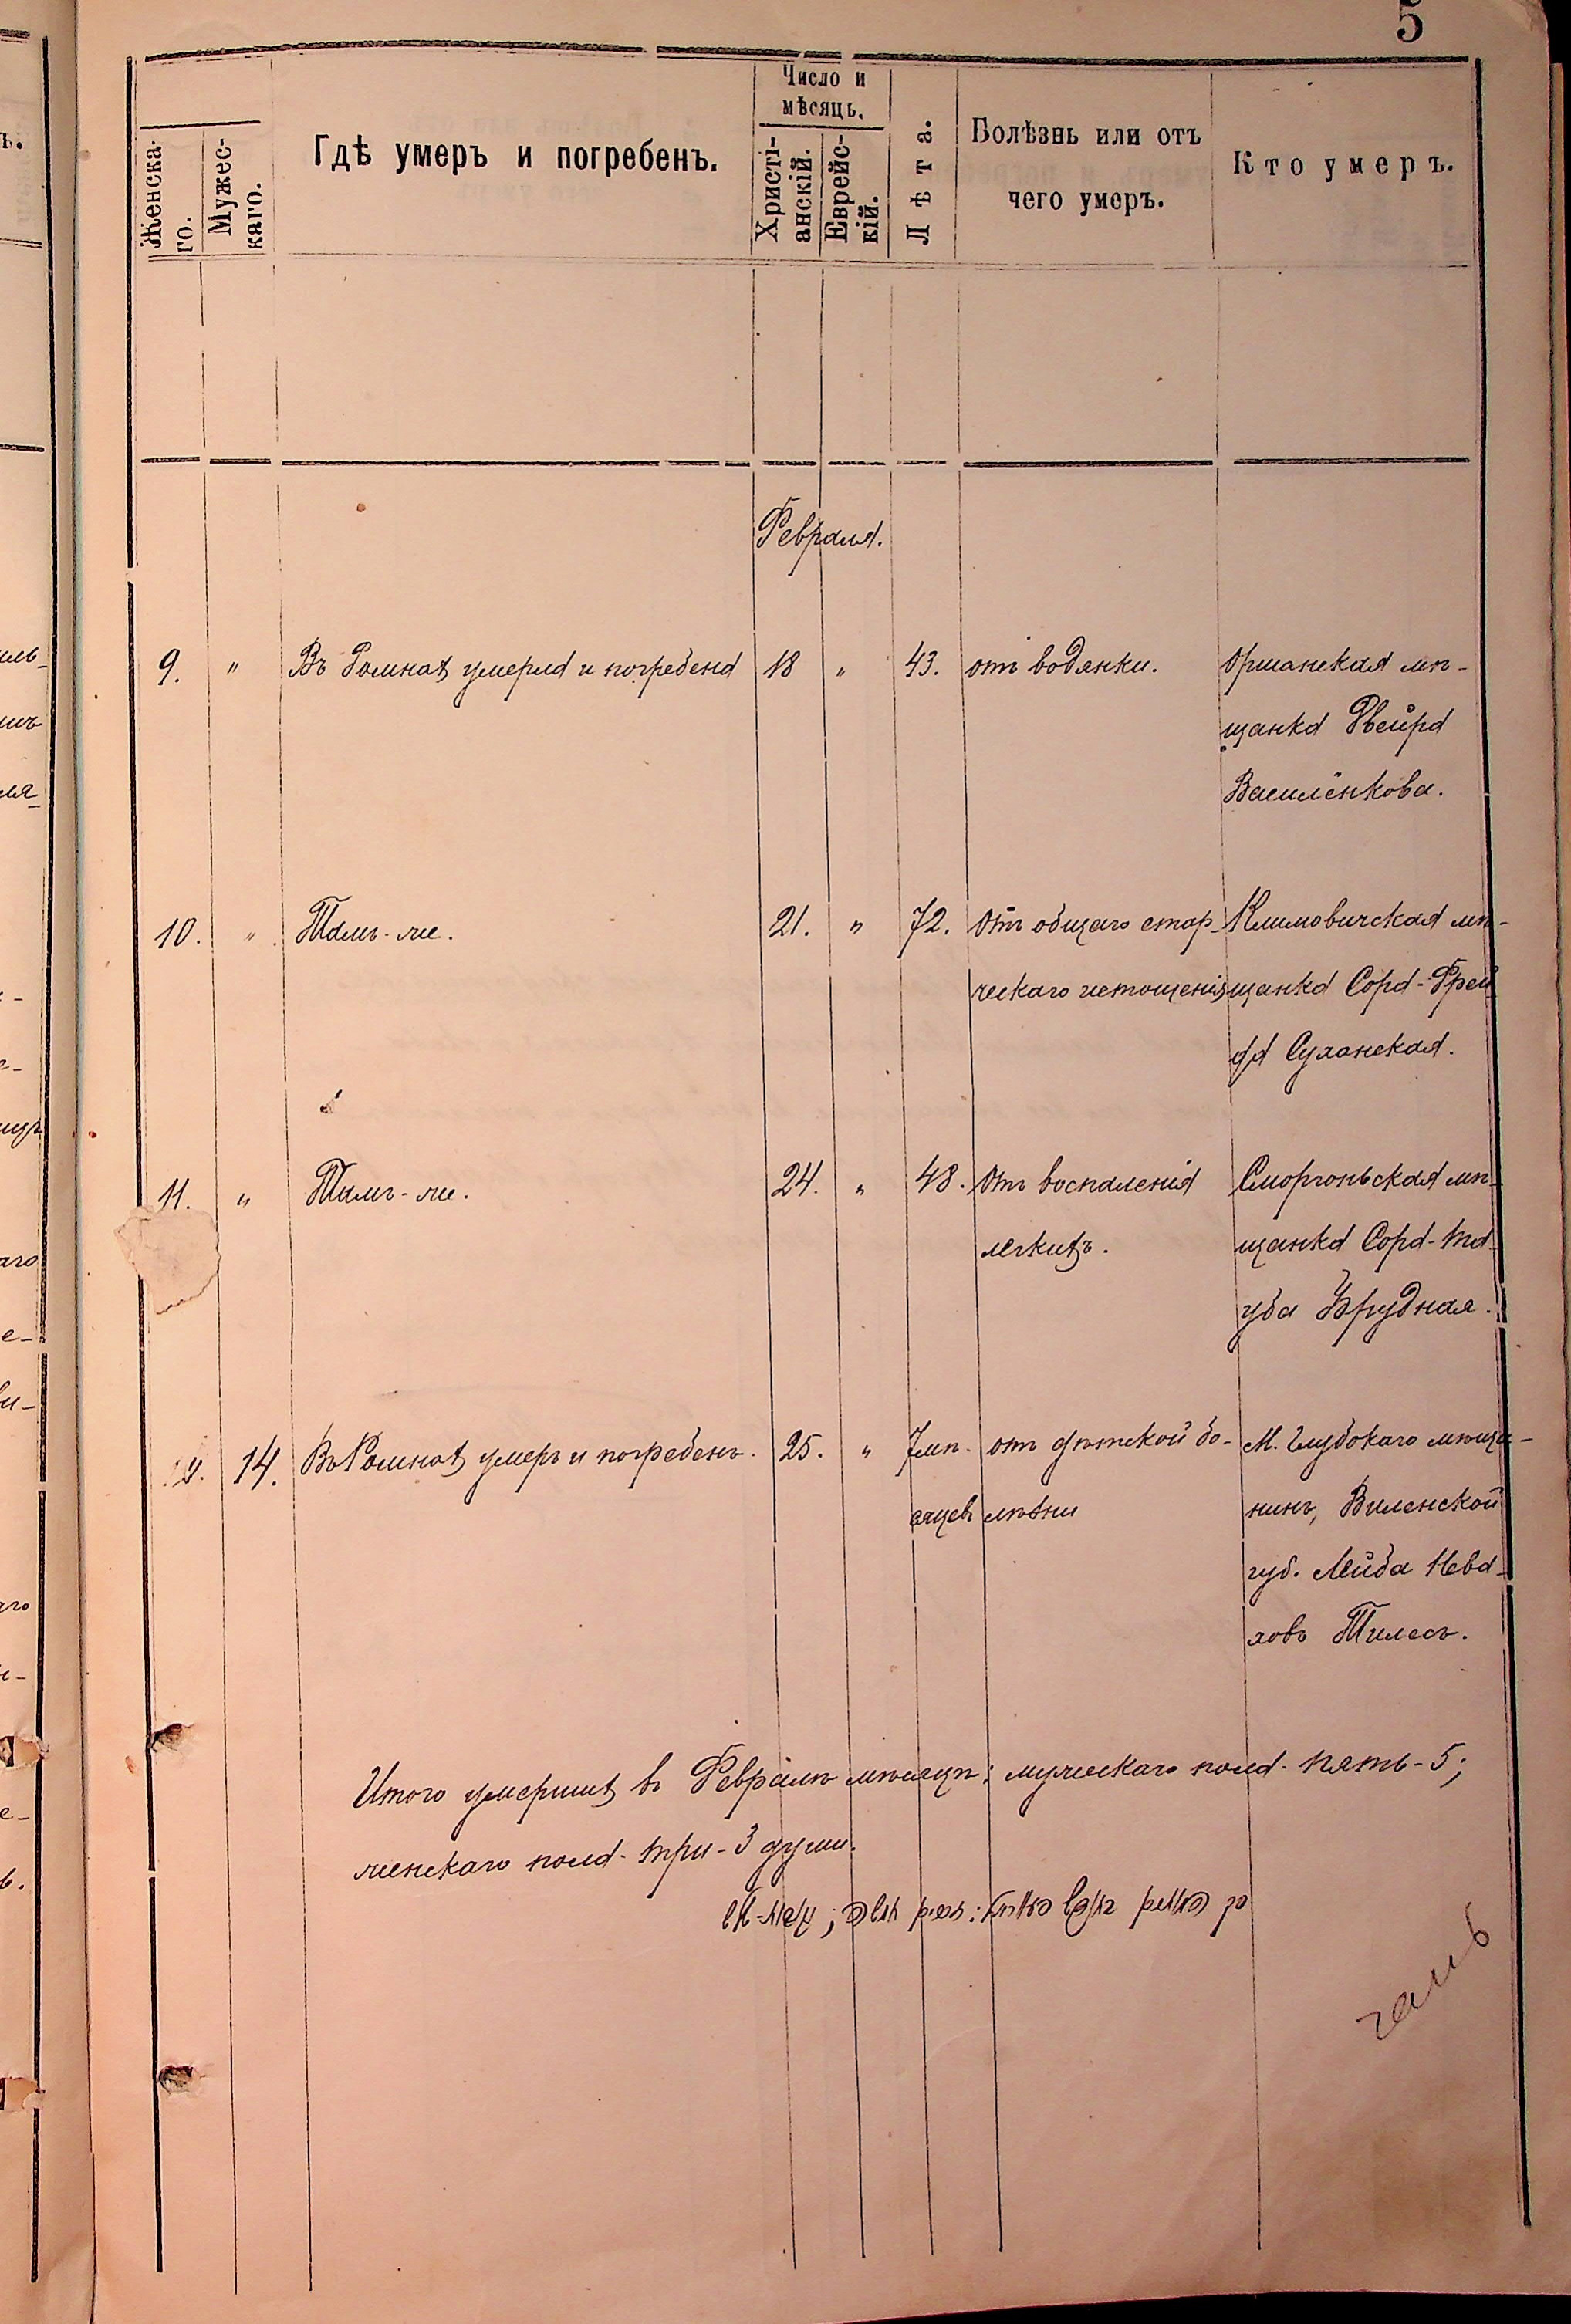 5
Женска-
го.
Мужес-
каго.
Гдѣ умеръ и погребенъ.
Число и
мѣсяцъ.
Христі-
анскій.
Еврейс-
кій.
Лѣта.
Болѣзнь или отъ
чего умеръ.
Кто умеръ.
Февраля.
9. " Въ Ромнахъ умерла и погребена 18 " 43. отъ водянки. Оршанская мѣ-
щанка Двейра
Василенкова.
10. " Тамъ-же. 21. " 72. Отъ общаго стар- Климовичская мѣ-
ческаго истощенія щанка Сора-Фрей
да Суханская.
11. " Тамъ-же. 24. " 48. Отъ воспаленія Сморгоньская мѣ-
легкихъ. щанка Сора-та-
уба Брудная.
14. Въ Ромнахъ умеръ и погребенъ. 25. " 7 мѣ- отъ дѣтской бо- М. Глубокаго мѣща-
сяцевъ лѣзни нинъ, Виленской
губ. Лейба Нева-
ховъ Тилесъ.
Итого умершихъ въ Февралѣ мѣсяцѣ: мужескаго пола - пять - 5;
женскаго пола - три - 3 души.